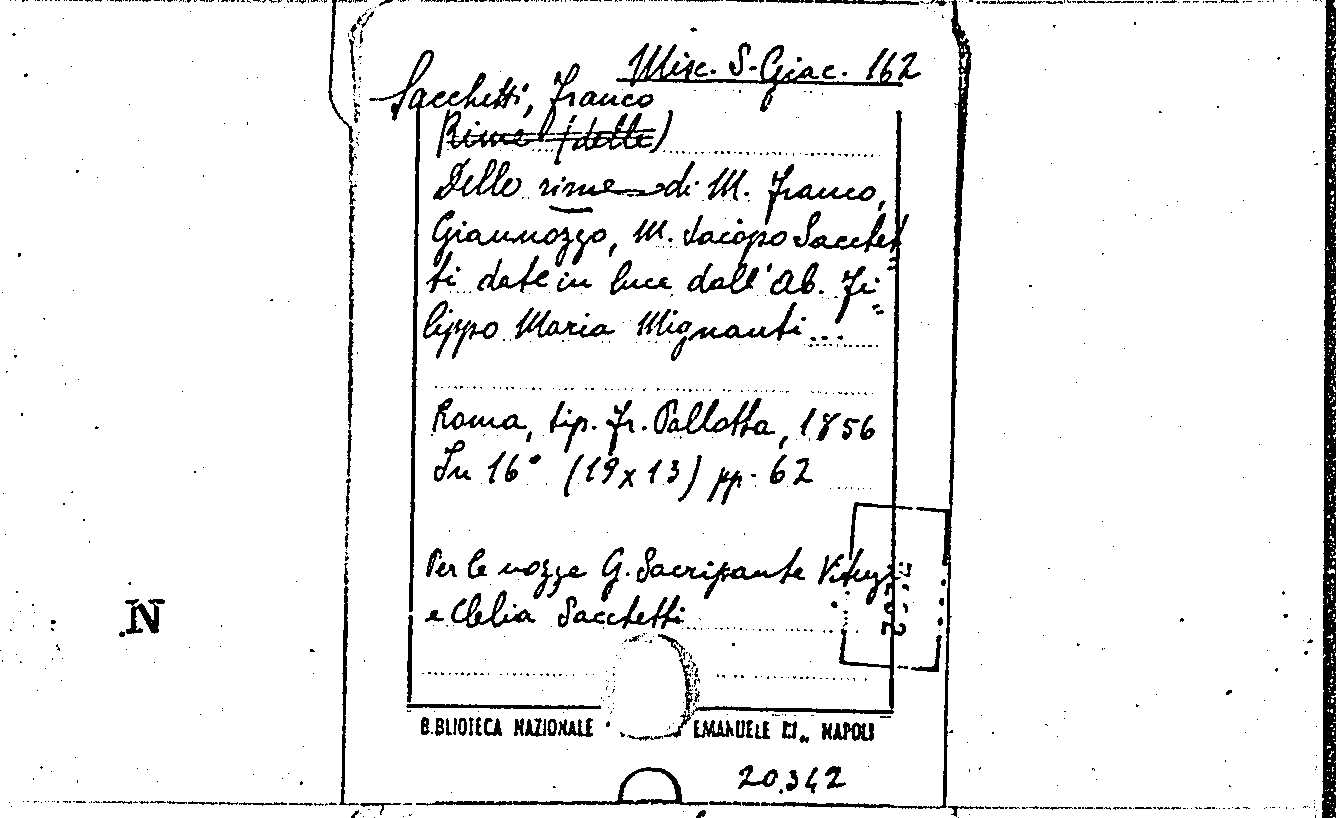 Misc. S. Giac. 162
Sacchetti, Franco
Rime (delle)
Delle rime di M. Franco,
Giannozzo, M. Jacopo Sacchet
ti date in luce dall'Ab. Fi=
lippo Maria Mignanti...
Roma, tip. Fr. Pallotta, 1856
In 16° (19x13) pp. 62
Per le nozze G. Sacripante
e Clelia Sacchetti
N
B.BLIOTECA NAZIONALE EMANUELE III„ NAPOLI
20.342